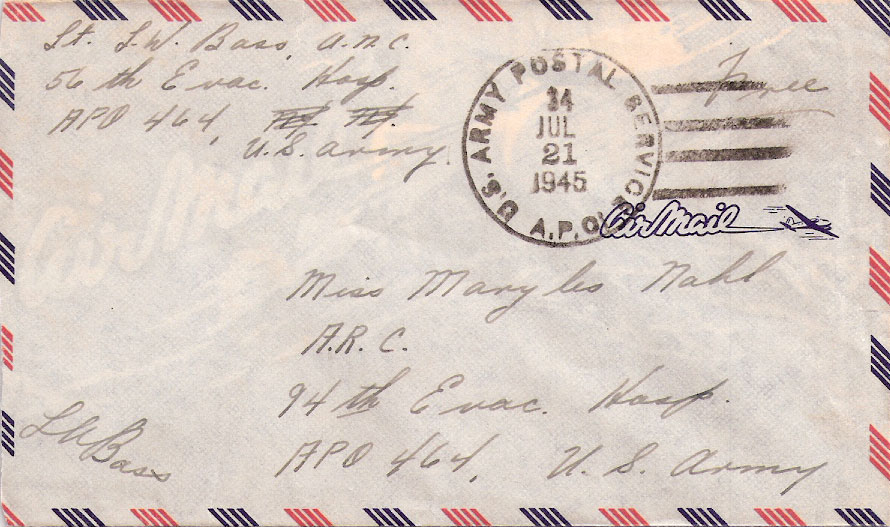 Lt. L.W. Bass, A.N.C.
56th Evac. Hosp.
APO 464, N.Y. N.Y.
U.S. Army.
Free
U.S. ARMY POSTAL SERVICE
A.P.O.
14
JUL
21
1945
Air Mail
Miss Mary les Nahl
A.R.C.
94th Evac. Hosp.
APO 464, U. S. Army
LWBass